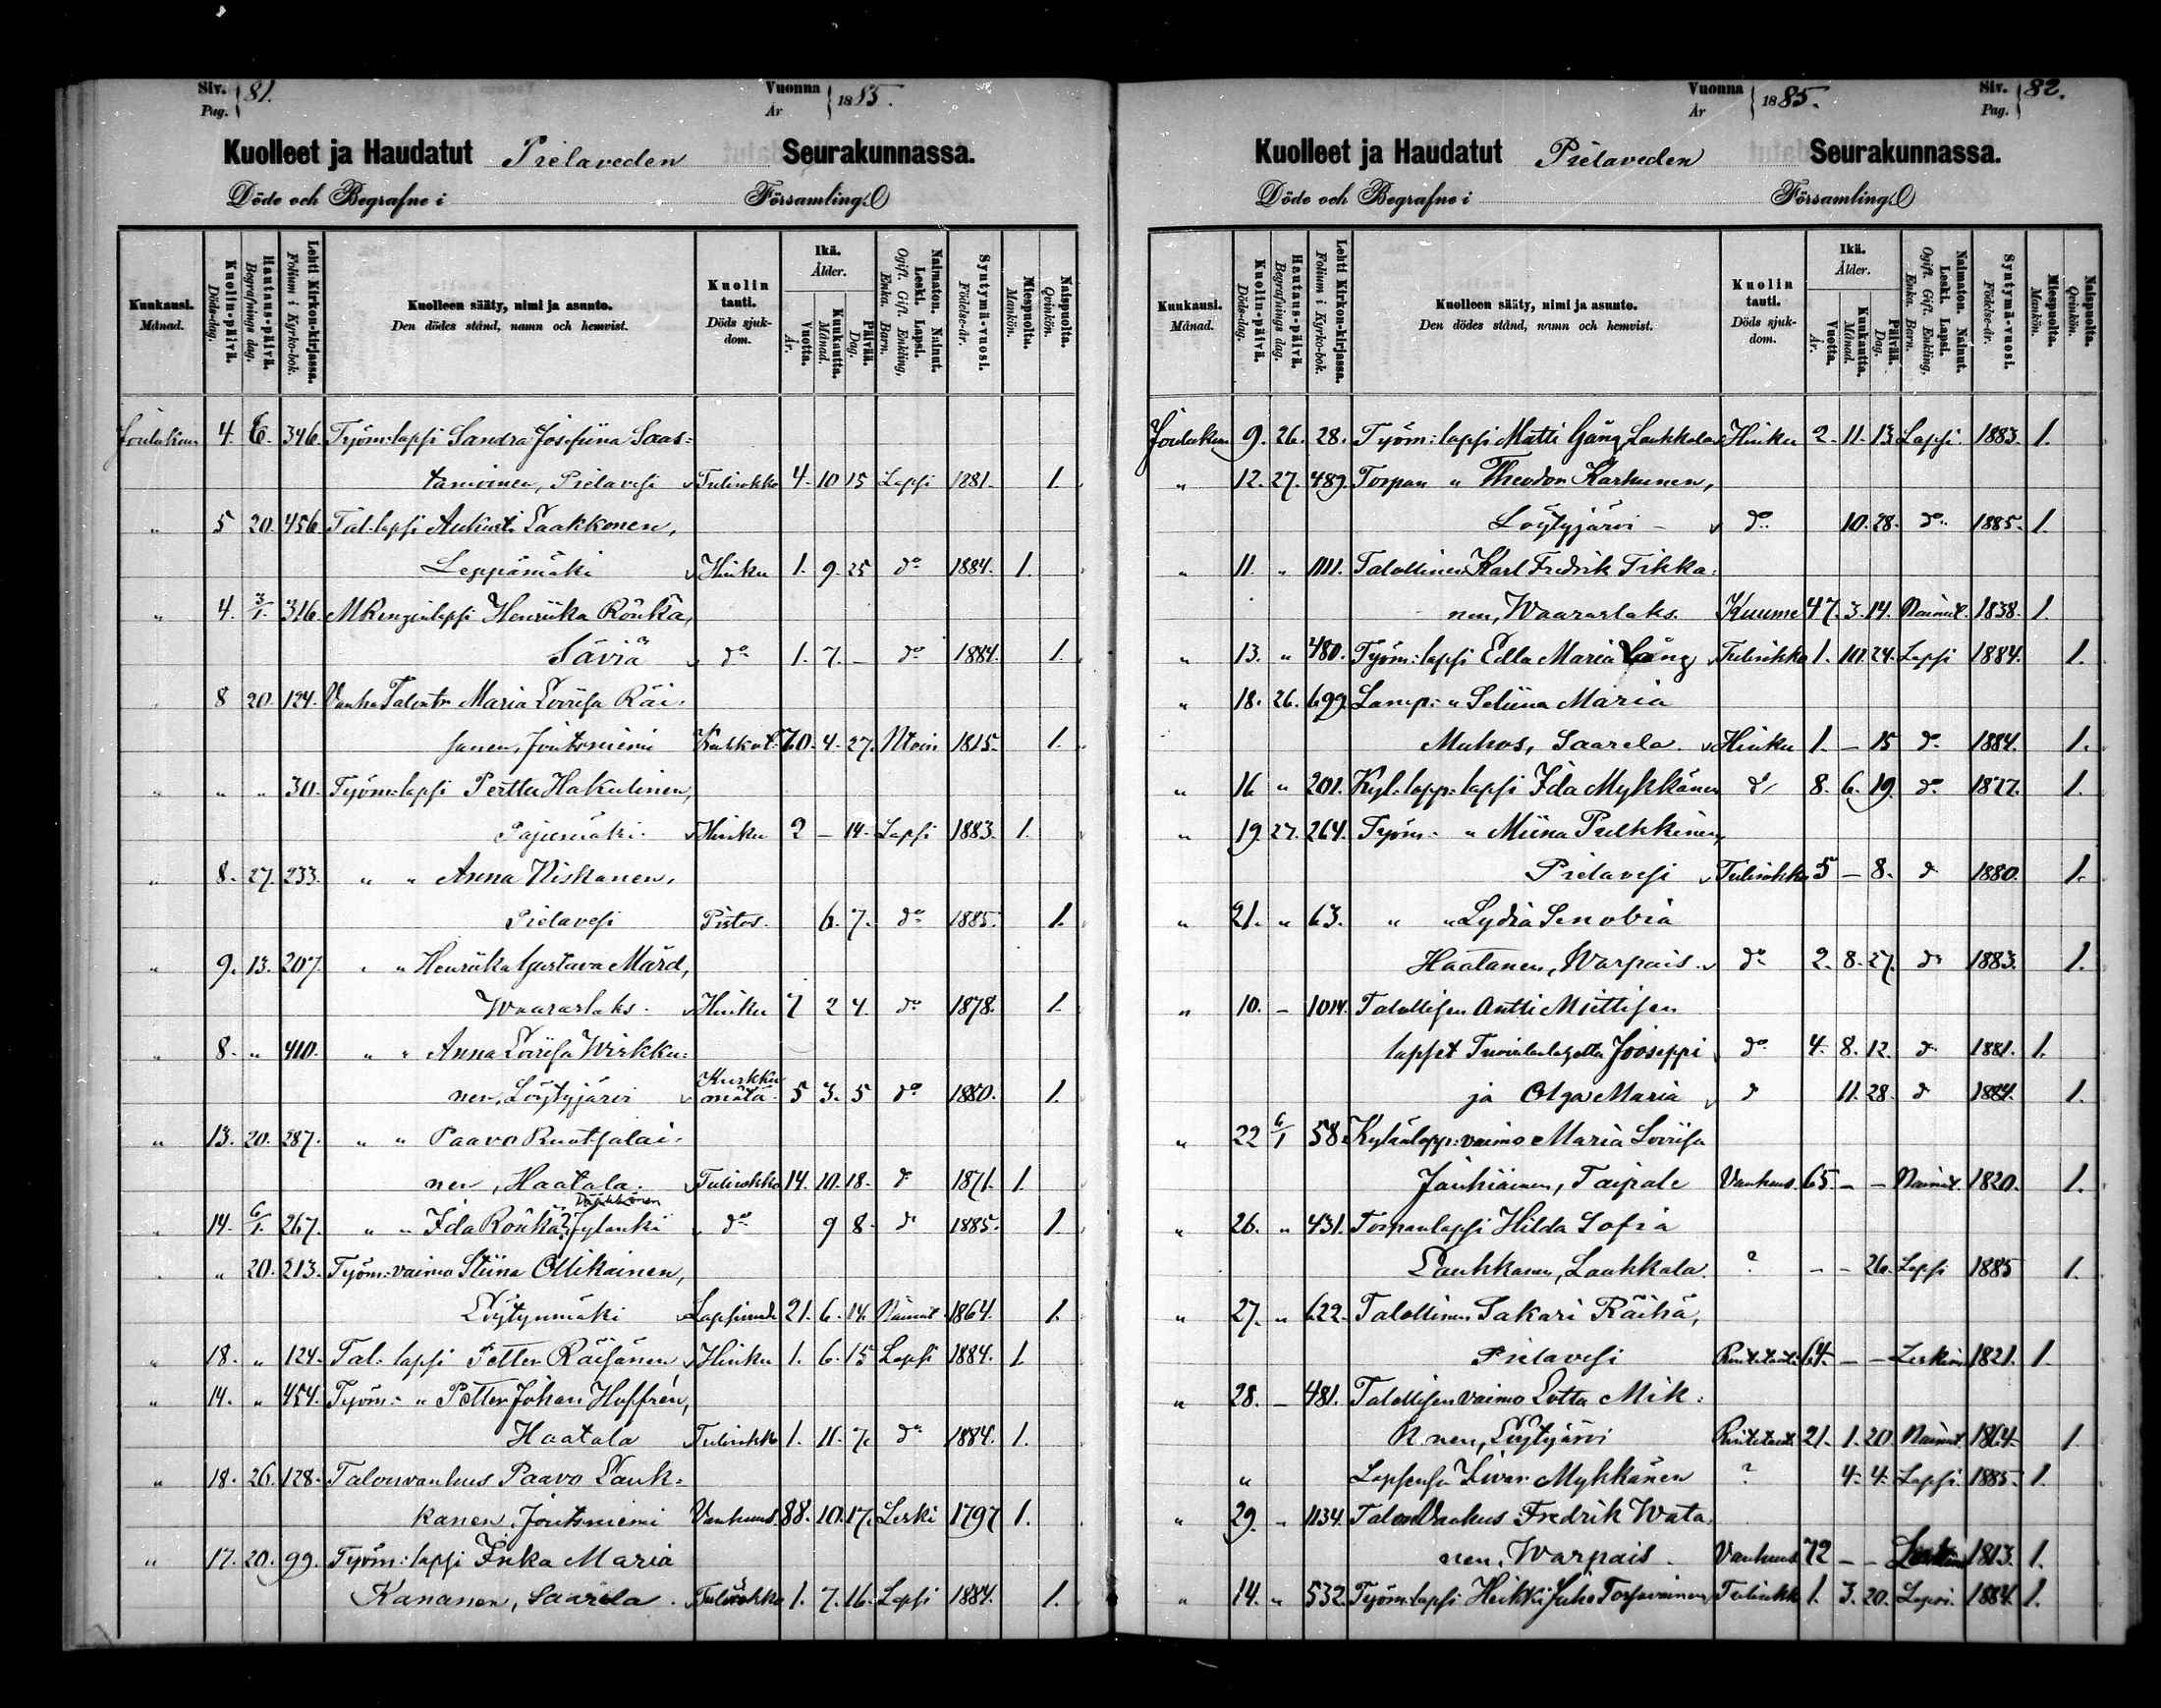 Siv. Pag. 81. Vuonna År 1885.
Kuolleet ja Haudatut Pielaveden Seurakunnassa.
Döde och Begrafne i Församling.
Kuukausi. Månad. Kuolin-päivä. Döds-dag. Hautaus-päivä. Begrafnings dag. Lehti Kirkon-kirjassa. Folium i Kyrko-bok. Kuolleen sääty, nimi ja asunto. Den dödes stånd, namn och hemvist. Kuolin tauti. Döds sjukdom. Ikä. Ålder. Vuotta. År. Kuukautta. Månad. Päivää. Dag. Naimaton. Nainut. Leski. Lapsi. Ogift. Gift. Enkling, Enka. Barn. Syntymä-vuosi. Födelse-år. Miespuolta. Mankön. Naispuolta. Qvinkön.
Joulukuu 4. 346. Työm: lapsi Sandra Josefiina Saas=
tamoinen, Pielavesi Tulirokko 4. 10 15 Lapsi 1881. 1.
" 5 20. 456. Tal. lapsi Aukusti Laakkonen,
Leppämäki Hinku 1. 9. 25 do 1884. 1.
" 4. 3/1. 316. MRenginlapsi Henriika Rönkä,
Säviä do 1. 7. – do 1884. 1.
" 8 20. 124. Vanha Talontr Maria Loviisa Räi=
sänen, Joutsniemi 70. 4. 27. 1815. 1.
" " " 30. Työm: lapsi Pertta Hakulinen,
Pajumäki. Hinku 2 – 14. Lapsi 1883. 1.
" 8. 27. 233. " " Anna Niskanen,
Pielavesi Pistos. 6. 7. do 1885. 1.
" 9. 13. 207. " " Henriika Gustava Mård,
Waararlaks. Hinku 7 2 4. do 1878. 1.
" 8. " 410. " " Anna Loviisa Wirkku=
nen, Löytyjärvi Kurkku mätä. 5 3. 5 do 1880. 1.
" 13. 20. 287. " " Paavo Ruotsalai=
nen, Haatala. Tulirokko 14. 10. 18. do 1871. 1.
Pääkkönen
" 14. 6/1. 267. " " Ida Rönkä? Jylänki do 9 8. do 1885. 1.
" " 20. 213. Työm: vaimo Stiina Ollikainen,
Löytynmäki 21. 6. 14. Nainut 1864. 1.
" 18. " 124. Tal: lapsi Petter Räisänen Hinku 1. 6. 15 Lapsi 1884. 1
" 14. " 454. Työm: " Petter Johan Hoffrén,
Haatala Tulirokko 1. 11. 7. do 1884. 1.
" 18. 26. 128. Talonvanhus Paavo Lauk=
kanen, Joutsniemi Vanhuus. 88. 10. 17. Leski 1797 1.
" 17. 20. 99. Työm: lapsi Inka Maria
Kananen, Saarela. Tulirokko 1. 7. 16. Lapsi 1884. 1.
Vuonna År 1885. Siv. Pag. 82.
Kuolleet ja Haudatut Pielaveden Seurakunnassa.
Döde och Begrafne i Församling.
Kuukausi. Månad. Kuolin-päivä. Döds-dag. Hautaus-päivä. Begrafnings dag. Lehti Kirkon-kirjassa. Folium i Kyrko-bok. Kuolleen sääty, nimi ja asunto. Den dödes stånd, namn och hemvist. Kuolin tauti. Döds sjukdom. Ikä. Ålder. Vuotta. År. Kuukautta. Månad. Päivää. Dag. Naimaton. Nainut. Leski. Lapsi. Ogift. Gift. Enkling, Enka. Barn. Syntymä-vuosi. Födelse-år. Miespuolta. Mankön. Naispuolta. Qvinkön.
Jouluk. 9. 26. 28. Työm: lapsi Matti Gång, Laukkala Hinku 2. 11. 13 Lapsi. 1883. 1.
" 12. 27. 489. Torpan " Theodor Karhunen,
Löytyjärvi – do 10. 28. do 1885. 1.
" 11. " 1111. Talollinen Karl Fredrik Tikka=
nen, Waararlaks. Kuume 47. 3. 14. Nainut. 1838. 1.
" 13. " 480. Työm: lapsi Edla Maria Gång Tulirokko 1. 10. 24. Lapsi 1884. 1.
" 18. 26. 699. Lamp: " Seliina Maria
Muhos, Saarela. Hinku 1. – 15 do 1884. 1.
" 16 " 201. Kyl. lapp: lapsi Ida Mykkänen do 8. 6. 19. do 1877. 1.
" 19. 27. 264. Työm: " Miina Pulkkinen,
Pielavesi Tulirokko 5 – 8. do 1880. 1.
" 21. " 63. " " Lydia Senobia
Haatanen, Warpais. do 2. 8. 27. do 1883. 1.
" 10. – 1014. Talollisen Antti Miettisen
lapset Jooseppi do 4. 8. 12. do 1881. 1.
ja Olga Maria do 11. 28. do 1884. 1.
" 22 6/1 58. Kylänlopp: vaimo Maria Loviisa
Jänhiäinen, Taipale Vanhuus. 65. – – Nainut. 1820. 1.
" 26. " 431. Torpanlapsi Hilda Sofia
Laukkanen, Laukkala. ? – – 26. Lapsi 1885 1.
" 27. " 622. Talollinen Sakari Räihä,
Pielavesi 64. – – 1821. 1.
" 28. – 481. Talollisen vaimo Lotta Mik=
nen, Löytyjärvi 21. 1. 20. Nainut. 1864. 1
" Lapsensa Iivar Mykkänen ? 4. 4. Lapsi. 1885. 1.
" 29. " 1134. Talon Vanhus Fredrik Wata=
nen, Warpais. Vanhuus 72 – – 1813. 1.
" 14. " 532. Työm: lapsi Heikki Juho Tulirokk 1. 3. 20. Lapsi. 1884. 1.